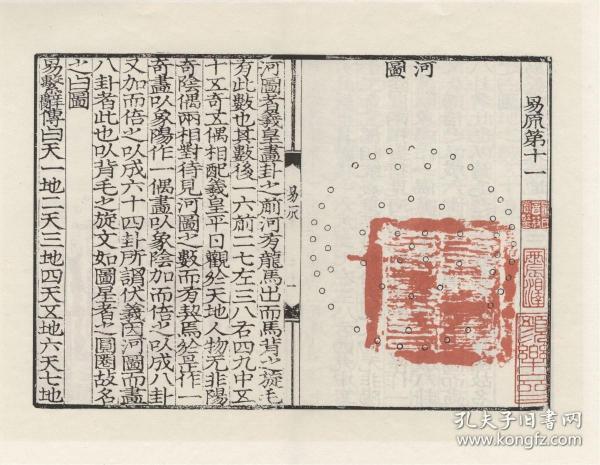 易原第十一
河圖
易原
一
河圖者羲皇畫卦之前河有龍馬出而馬背之旋毛
有此數也其數後一六前二七左三八右四九中五
十五奇五偶相配羲皇平日觀於天地人物无非陽
奇陰偶兩相對待見河圖之數而有契焉於是作一
奇畫以象陽作一偶畫以象陰加而倍之以成八卦
又加而倍之以成六十四卦所謂伏羲因河圖而畫
八卦者此也以背毛之旋文如圖星者之圓圈故名
之曰圖
易繫辭傳曰天一地二天三地四天五地六天七地
孔夫子旧书网
www.kongfz.com